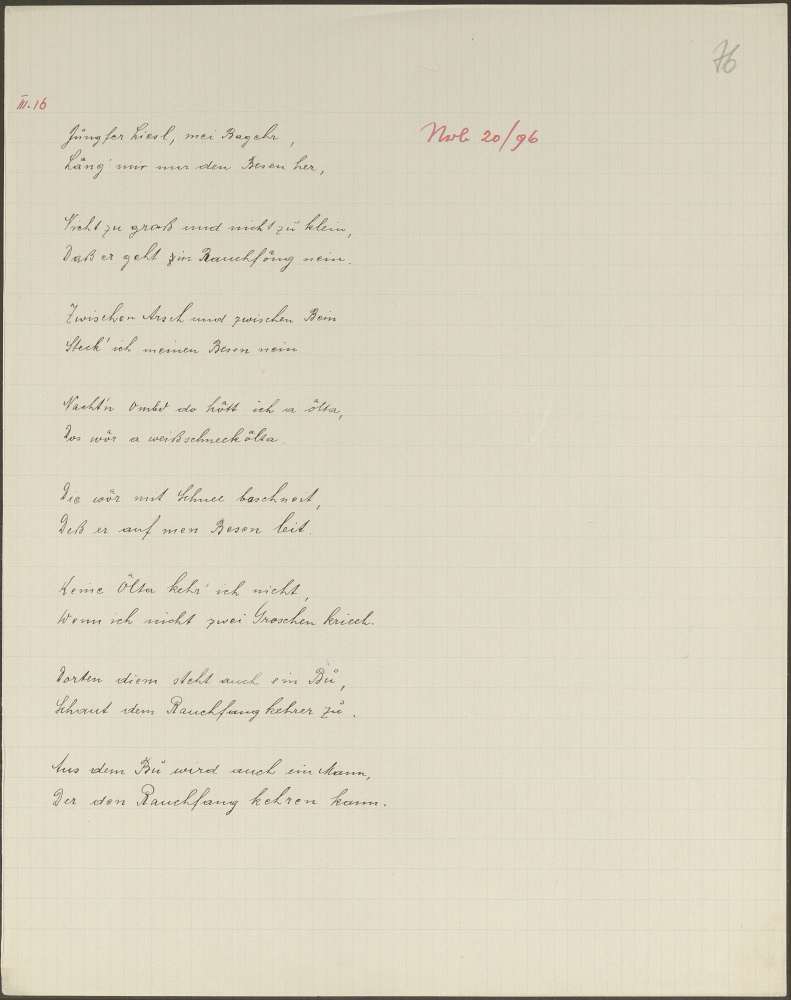 76
III.16
Jüngfer Liesl, mei Bagehr,
Nvb 20/96
Läng' mir nur den Besen her,
Nicht zu groß und nicht zü klein,
Daß er geht in Rauchföng nein.
Zwischen Arsch und zwischen Bein
Steck' ich meinen Besen nein
Nacht'n Ombd do hött ich a ölta,
Dos wör a weißschneckölta.
Die wör mit Schnee baschneit,
Deß er auf men Besen leit.
Keine Ölta kehr' ich nicht,
Wenn ich nicht zwei Groschen kriech.
Dorten diem steht auch ein Bů,
Schaut dem Rauchfangkehrer zů.
Aus dem Bů wird auch ein Mann,
Der den Rauchfang kehren kann.